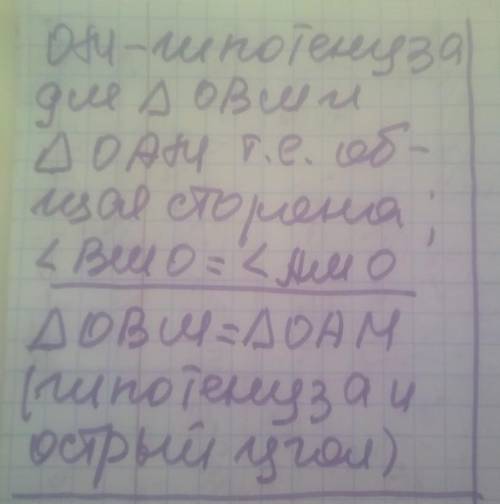 ОМ-гипотенуза
для △ ОВМ и
△ ОАМ т.е. об-
щая сторона;
∠ВМО=∠АМО
△ОВМ=△ОАМ
(гипотенуза и
острый угол)